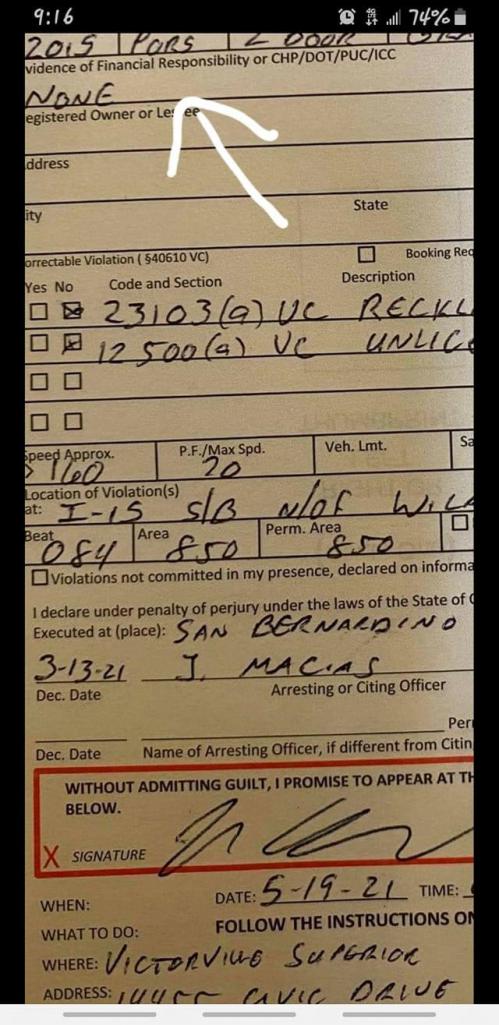 9:16 74%
2015 PORS 2 DOOR
vidence of Financial Responsibility or CHP/DOT/PUC/ICC
NONE
egistered Owner or Lessee
ddress
ity State
orrectable Violation ( §40610 VC) Booking Req
Yes No Code and Section Description
23103(a) VC RECKL
12500(a) VC UNLIC
Speed Approx. P.F./Max Spd. Veh. Lmt. Sa
> 160 70
Location of Violation(s)
at: I-15 S/B N/OF
Beat Area Perm. Area
084 850 850
Violations not committed in my presence, declared on informa
I declare under penalty of perjury under the laws of the State of C
Executed at (place): SAN BERNARDINO
3-13-21 J. MACIAS
Dec. Date Arresting or Citing Officer
Per
Dec. Date Name of Arresting Officer, if different from Citin
WITHOUT ADMITTING GUILT, I PROMISE TO APPEAR AT TH
BELOW.
X SIGNATURE
WHEN: DATE: 5-19-21 TIME:
WHAT TO DO: FOLLOW THE INSTRUCTIONS ON
WHERE: VICTORVILLE SUPERIOR
ADDRESS: 14455 CIVIC DRIVE